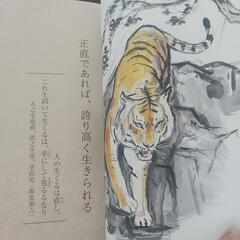 正直であれば、誇り高く生きられる
人の生くるは直し。
これを罔いて生くるは、幸にして免るるなり
人之生也直、罔之生也、幸而免（雍也第六）